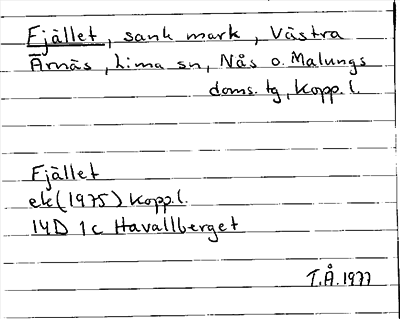 Fjället, sank mark, Västra
Ärnäs, Lima sn, Nås o. Malungs
doms. tg, Kopp. l.
Fjället
ek (1975) Kopp.l.
14D 1c Havallberget
T.Å. 1977